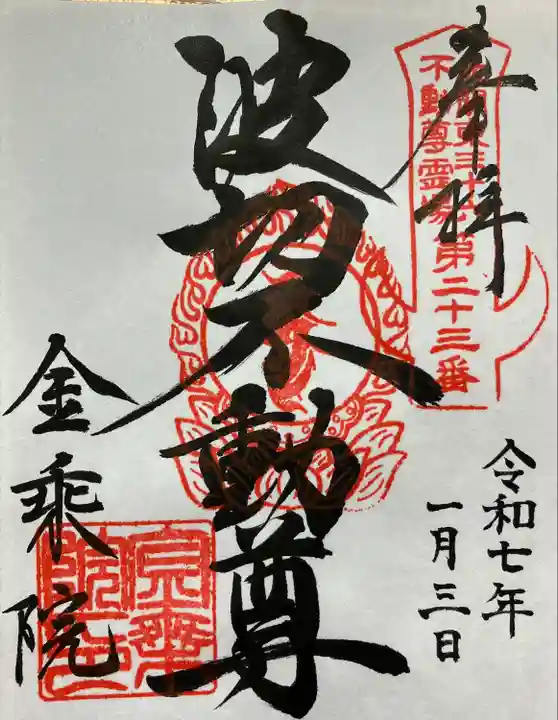 奉拝
東三十六
不動尊霊場第二十三番
波切不動尊
令和七年
一月三日
金乗院